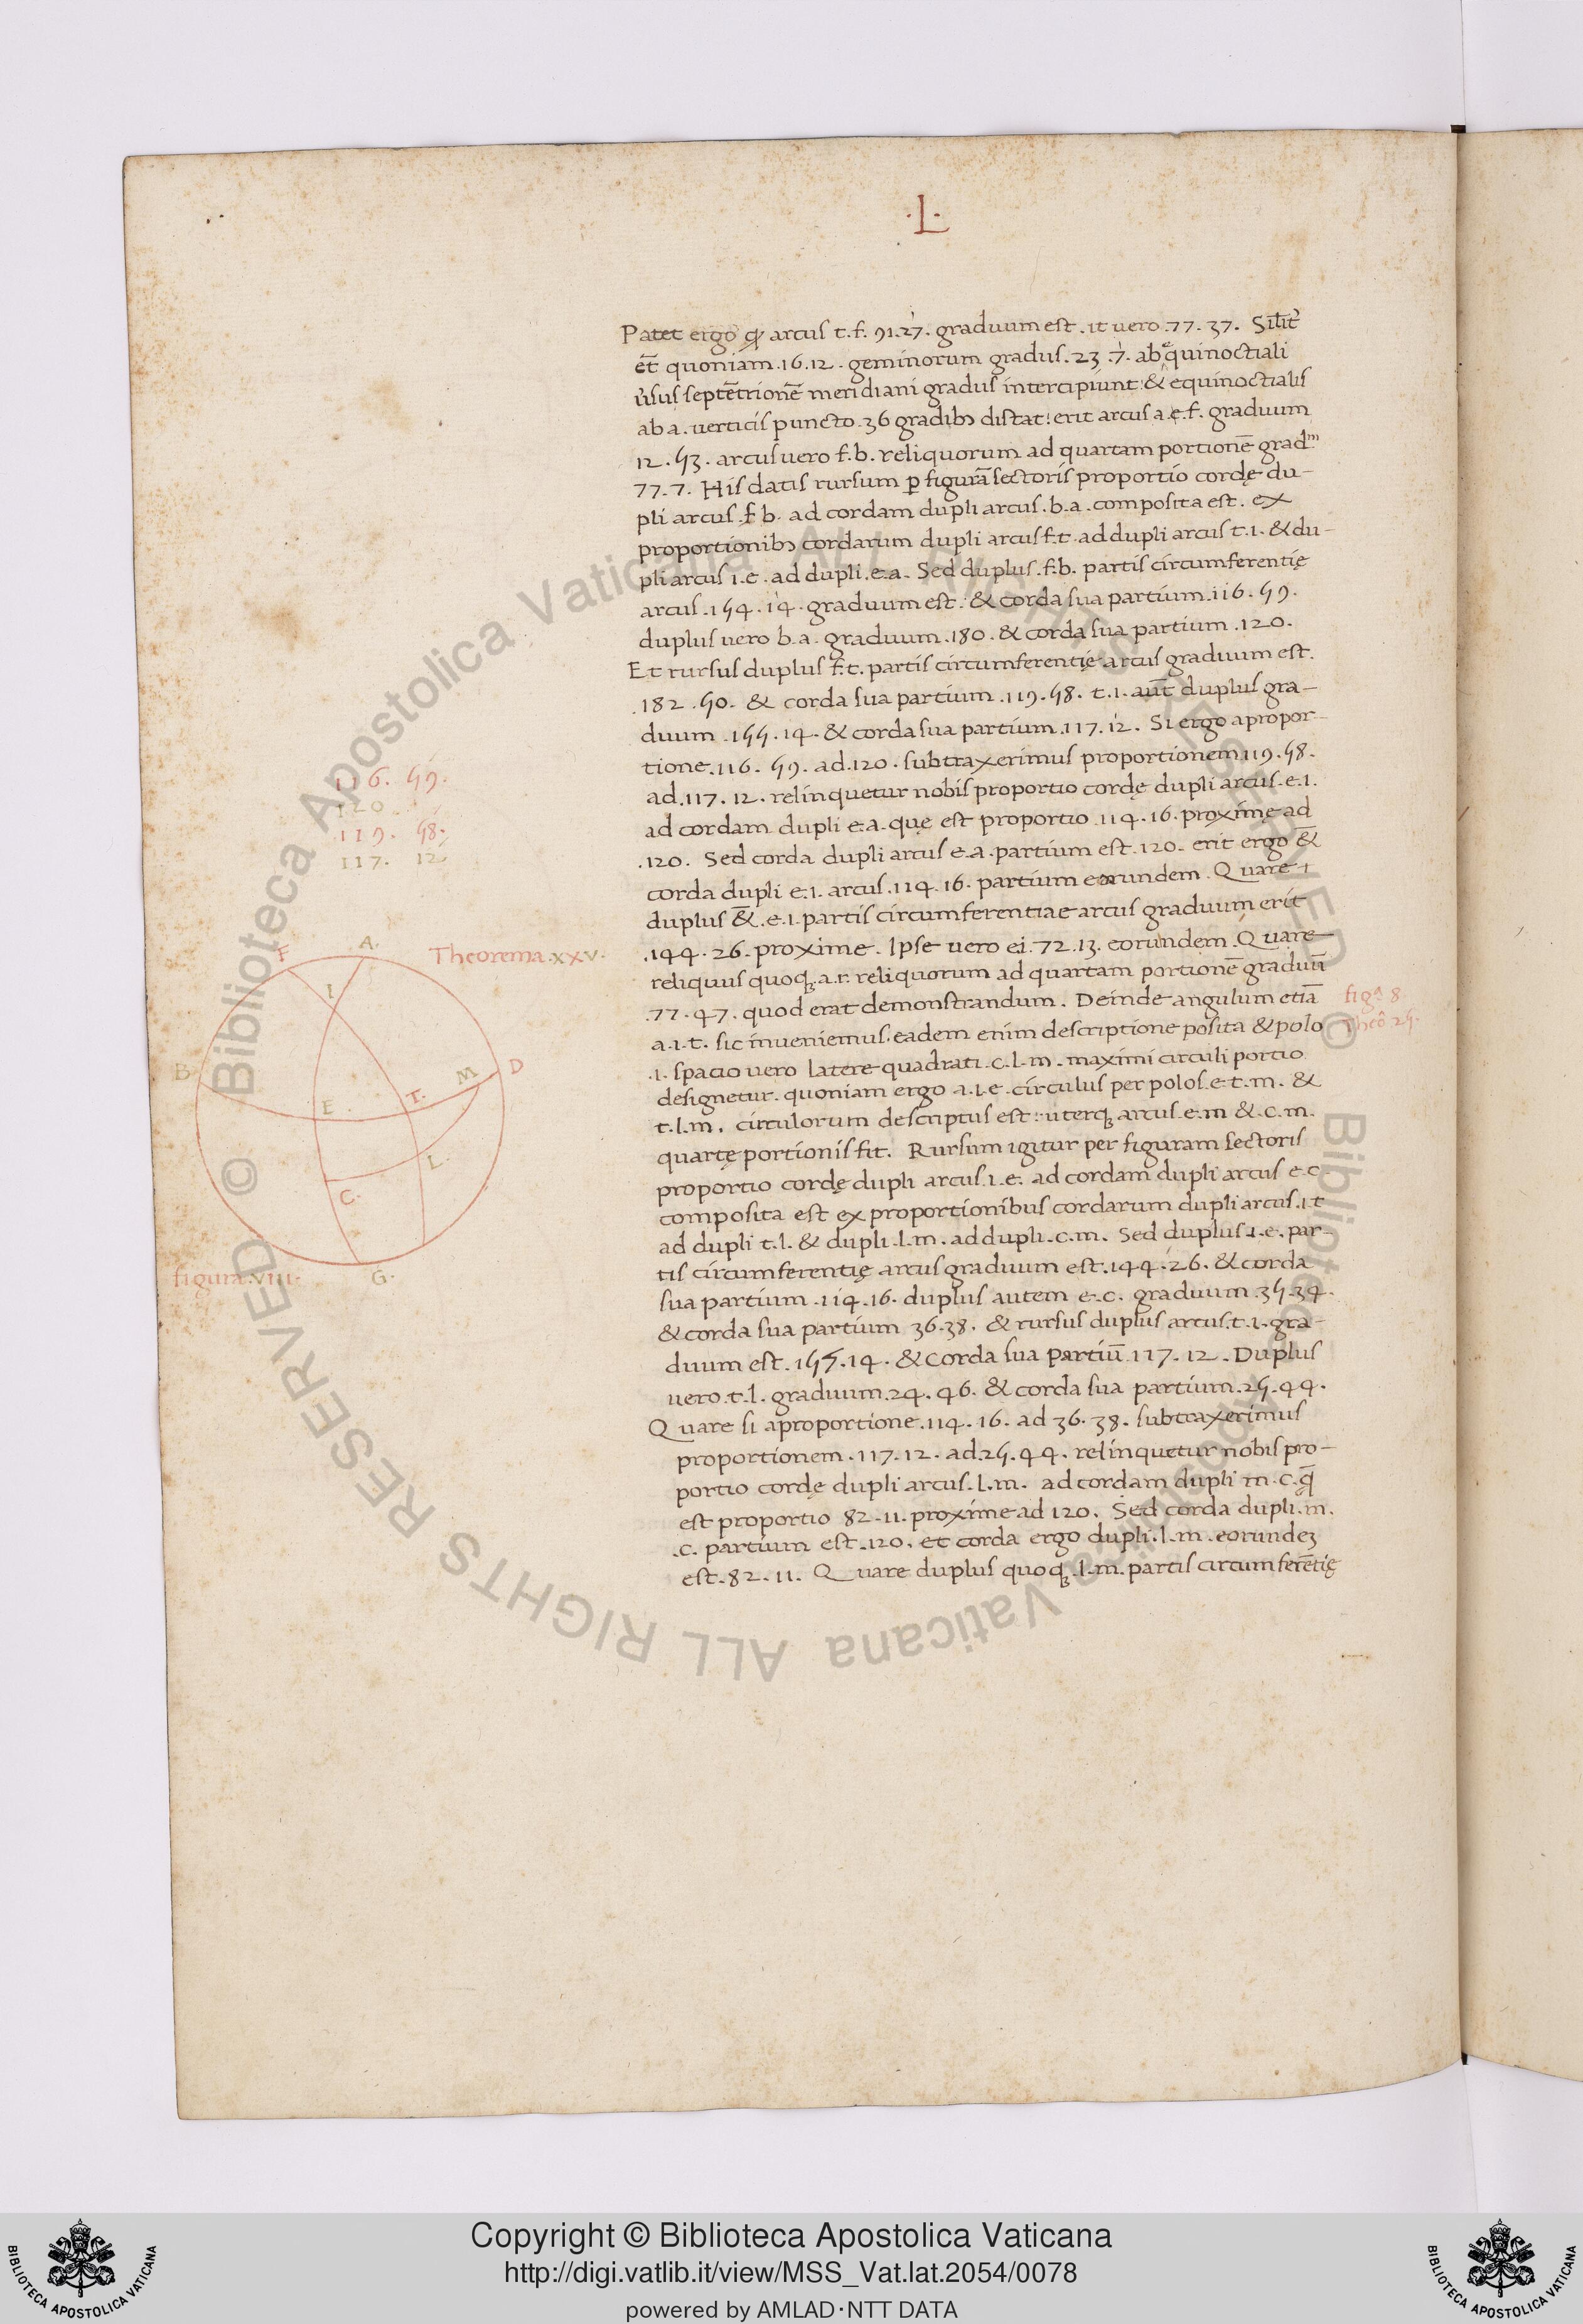 ·L·
Patet ergo ꝙ arcus t. f. 91.27. graduum est. it uero .77. 37. Silit̃
et̃ quoniam .16.12. geminorum gradus .23 .7. ab equinoctiali
ũsus septẽtrionẽ meridiani gradus intercipiunt: & equinoctialis
ab a. uerticis puncto 36 gradibꝫ distat: erit arcus a.e.f. graduum
12. 53. arcus uero f.b. reliquorum ad quartam portionẽ grad.m
77.7. His datis rursum ꝑ figurã sectoris proportio cordę du-
pli arcus .f b. ad cordam dupli arcus .b.a. composita est. ex
proportionibꝫ cordarum dupli arcus f.t. ad dupli arcus t.i. & du-
pli arcus i.e. ad dupli .e.a. Sed duplus .f.b. partis circumferentię
arcus .154.14. graduum est: & corda sua partium .116. 59.
duplus uero b.a. graduum .180. & corda sua partium .120.
Et rursus duplus f.t. partis circumferentię arcus graduum est.
.182.50. & corda sua partium .119.58. t.i. aut̃ duplus gra-
duum .155.14. & corda sua partium .117.12. Si ergo apropor-
tione .116. 59. ad .120. subtraxerimus proportionem 119.58.
ad .117. 12. relinquetur nobis proportio cordę dupli arcus .e.i.
ad cordam dupli e.a. quę est proportio 114.16. proximę ad
.120. Sed corda dupli arcus e.a. partium est .120. erit ergo &̃
corda dupli e.i. arcus .114.16. partium eorundem. Quare
duplus &̃ .e.i. partis circumferentiae arcus graduum erit
.144. 26. proxime. Ipse uero ei. 72.13. eorundem. Quare
reliquus quoqꝫ .a.r. reliquorum ad quartam portionẽ graduũ
.77.47. quod erat demonstrandum. Deinde angulum etiã
a.i.t. sic inueniemus. eadem enim descriptione posita & polo
.i. spacio uero latere quadrati .c.l.m. maximi circuli portio
designetur. quoniam ergo a.i.e. circulus per polos .e.t.m. &
t.l.m. circulorum descriptus est: uterqꝫ arcus .e.m & .c.m.
quartę portionis fit. Rursum igitur per figuram sectoris
proportio cordę dupli arcus .i.e. ad cordam dupli arcus e.c.
composita est ex proportionibus cordarum dupli arcus .i.t
ad dupli t.l. & dupli .l.m. ad dupli .c.m. Sed duplus .i.e. par-
tis circumferentię arcus graduum est .144.26. & corda
sua partium .114.16. duplus autem e.c. graduum .35.34.
& corda sua partium 36.38. & rursus duplus arcus .t.i. gra-
duum est .155.14. & corda sua partiũ 117.12. Duplus
uero .t.l. graduum .24. 46. & corda sua partium .25.44.
Quare si aproportione .114.16. ad 36.38. subtraxerimus
proportionem .117.12. ad .25.44. relinquetur nobis pro-
portio cordę dupli arcus .l.m. ad cordam dupli m.c. q̃
est proportio 82.11. proxime ad 120. Sed corda dupli .m.
.c. partium est .120. et corda ergo dupli .l.m. eorundeꝫ
est .82.11. Quare duplus quoqꝫ .l.m. partis circumferẽtię
116. 59.
120
119. 58.
117. 12
Theorema .xxv.
F A.
I
B D
E. T. M
L.
C.
G.
figura .viii.
figa 8.
Theô 25.
Biblioteca Apostolica Vaticana ALL RIGHTS RESERVED © Biblioteca Apostolica Vaticana ALL RIGHTS RESERVED ©
Copyright © Biblioteca Apostolica Vaticana
http://digi.vatlib.it/view/MSS_Vat.lat.2054/0078
powered by AMLAD·NTT DATA
BIBLIOTECA APOSTOLICA VATICANA
BIBLIOTECA APOSTOLICA VATICANA